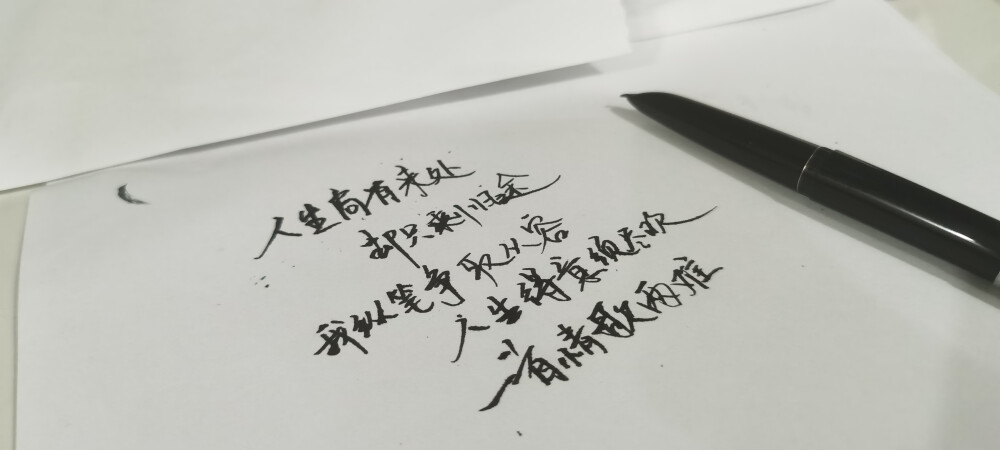 人生尚有来处
却只剩归途
我纵笔争取从容
人生得意须尽欢
有情歌两难